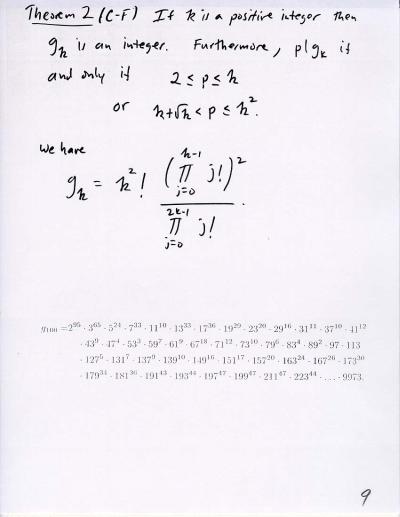 Theorem 2 (C-F) If k is a positive integer then
g_k is an integer. Furthermore, p|g_k if
and only if 2 ≤ p ≤ k
or k+√k < p ≤ k².
We have
g_k = k²! (∏_{j=0}^{k-1} j!)² / ∏_{j=0}^{2k-1} j! .
g₁₀₀ = 2^95 · 3^65 · 5^24 · 7^33 · 11^10 · 13^33 · 17^36 · 19^29 · 23^20 · 29^16 · 31^11 · 37^10 · 41^12
· 43^9 · 47^4 · 53^3 · 59^7 · 61^9 · 67^18 · 71^12 · 73^10 · 79^6 · 83^4 · 89^2 · 97 · 113
· 127^5 · 131^7 · 137^9 · 139^10 · 149^16 · 151^17 · 157^20 · 163^24 · 167^26 · 173^30
· 179^34 · 181^36 · 191^43 · 193^44 · 197^47 · 199^47 · 211^47 · 223^44 · . . . · 9973.
9